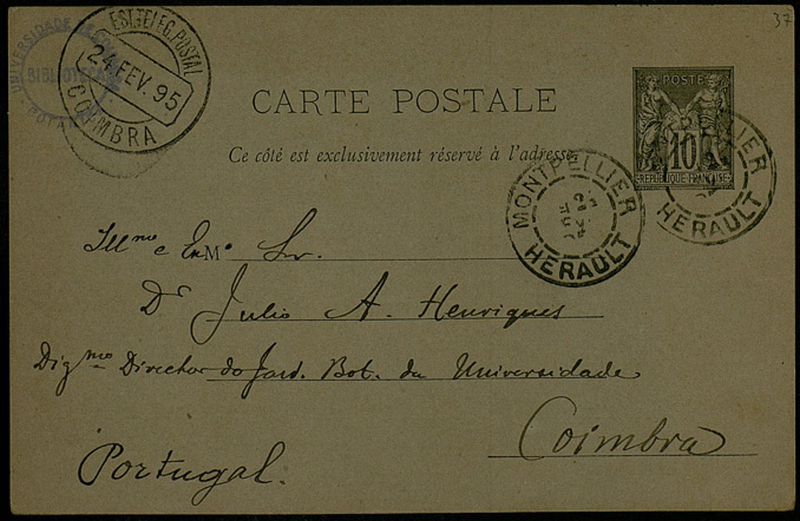 37
EST. TELEG. POSTAL
24 FEV. 95
COIMBRA
UNIVERSIDADE DE
BIBLIOTECA
CARTE POSTALE
Ce côté est exclusivement réservé à l'adresse
POSTE
10
REPUBLIQUE FRANÇAISE
MONTPELLIER
HERAULT
HERAULT
Illmo e ExMo Sr.
Dr Julio A. Henriques
Digmo Director do Jard. Bot. da Universidade
Coimbra
Portugal.